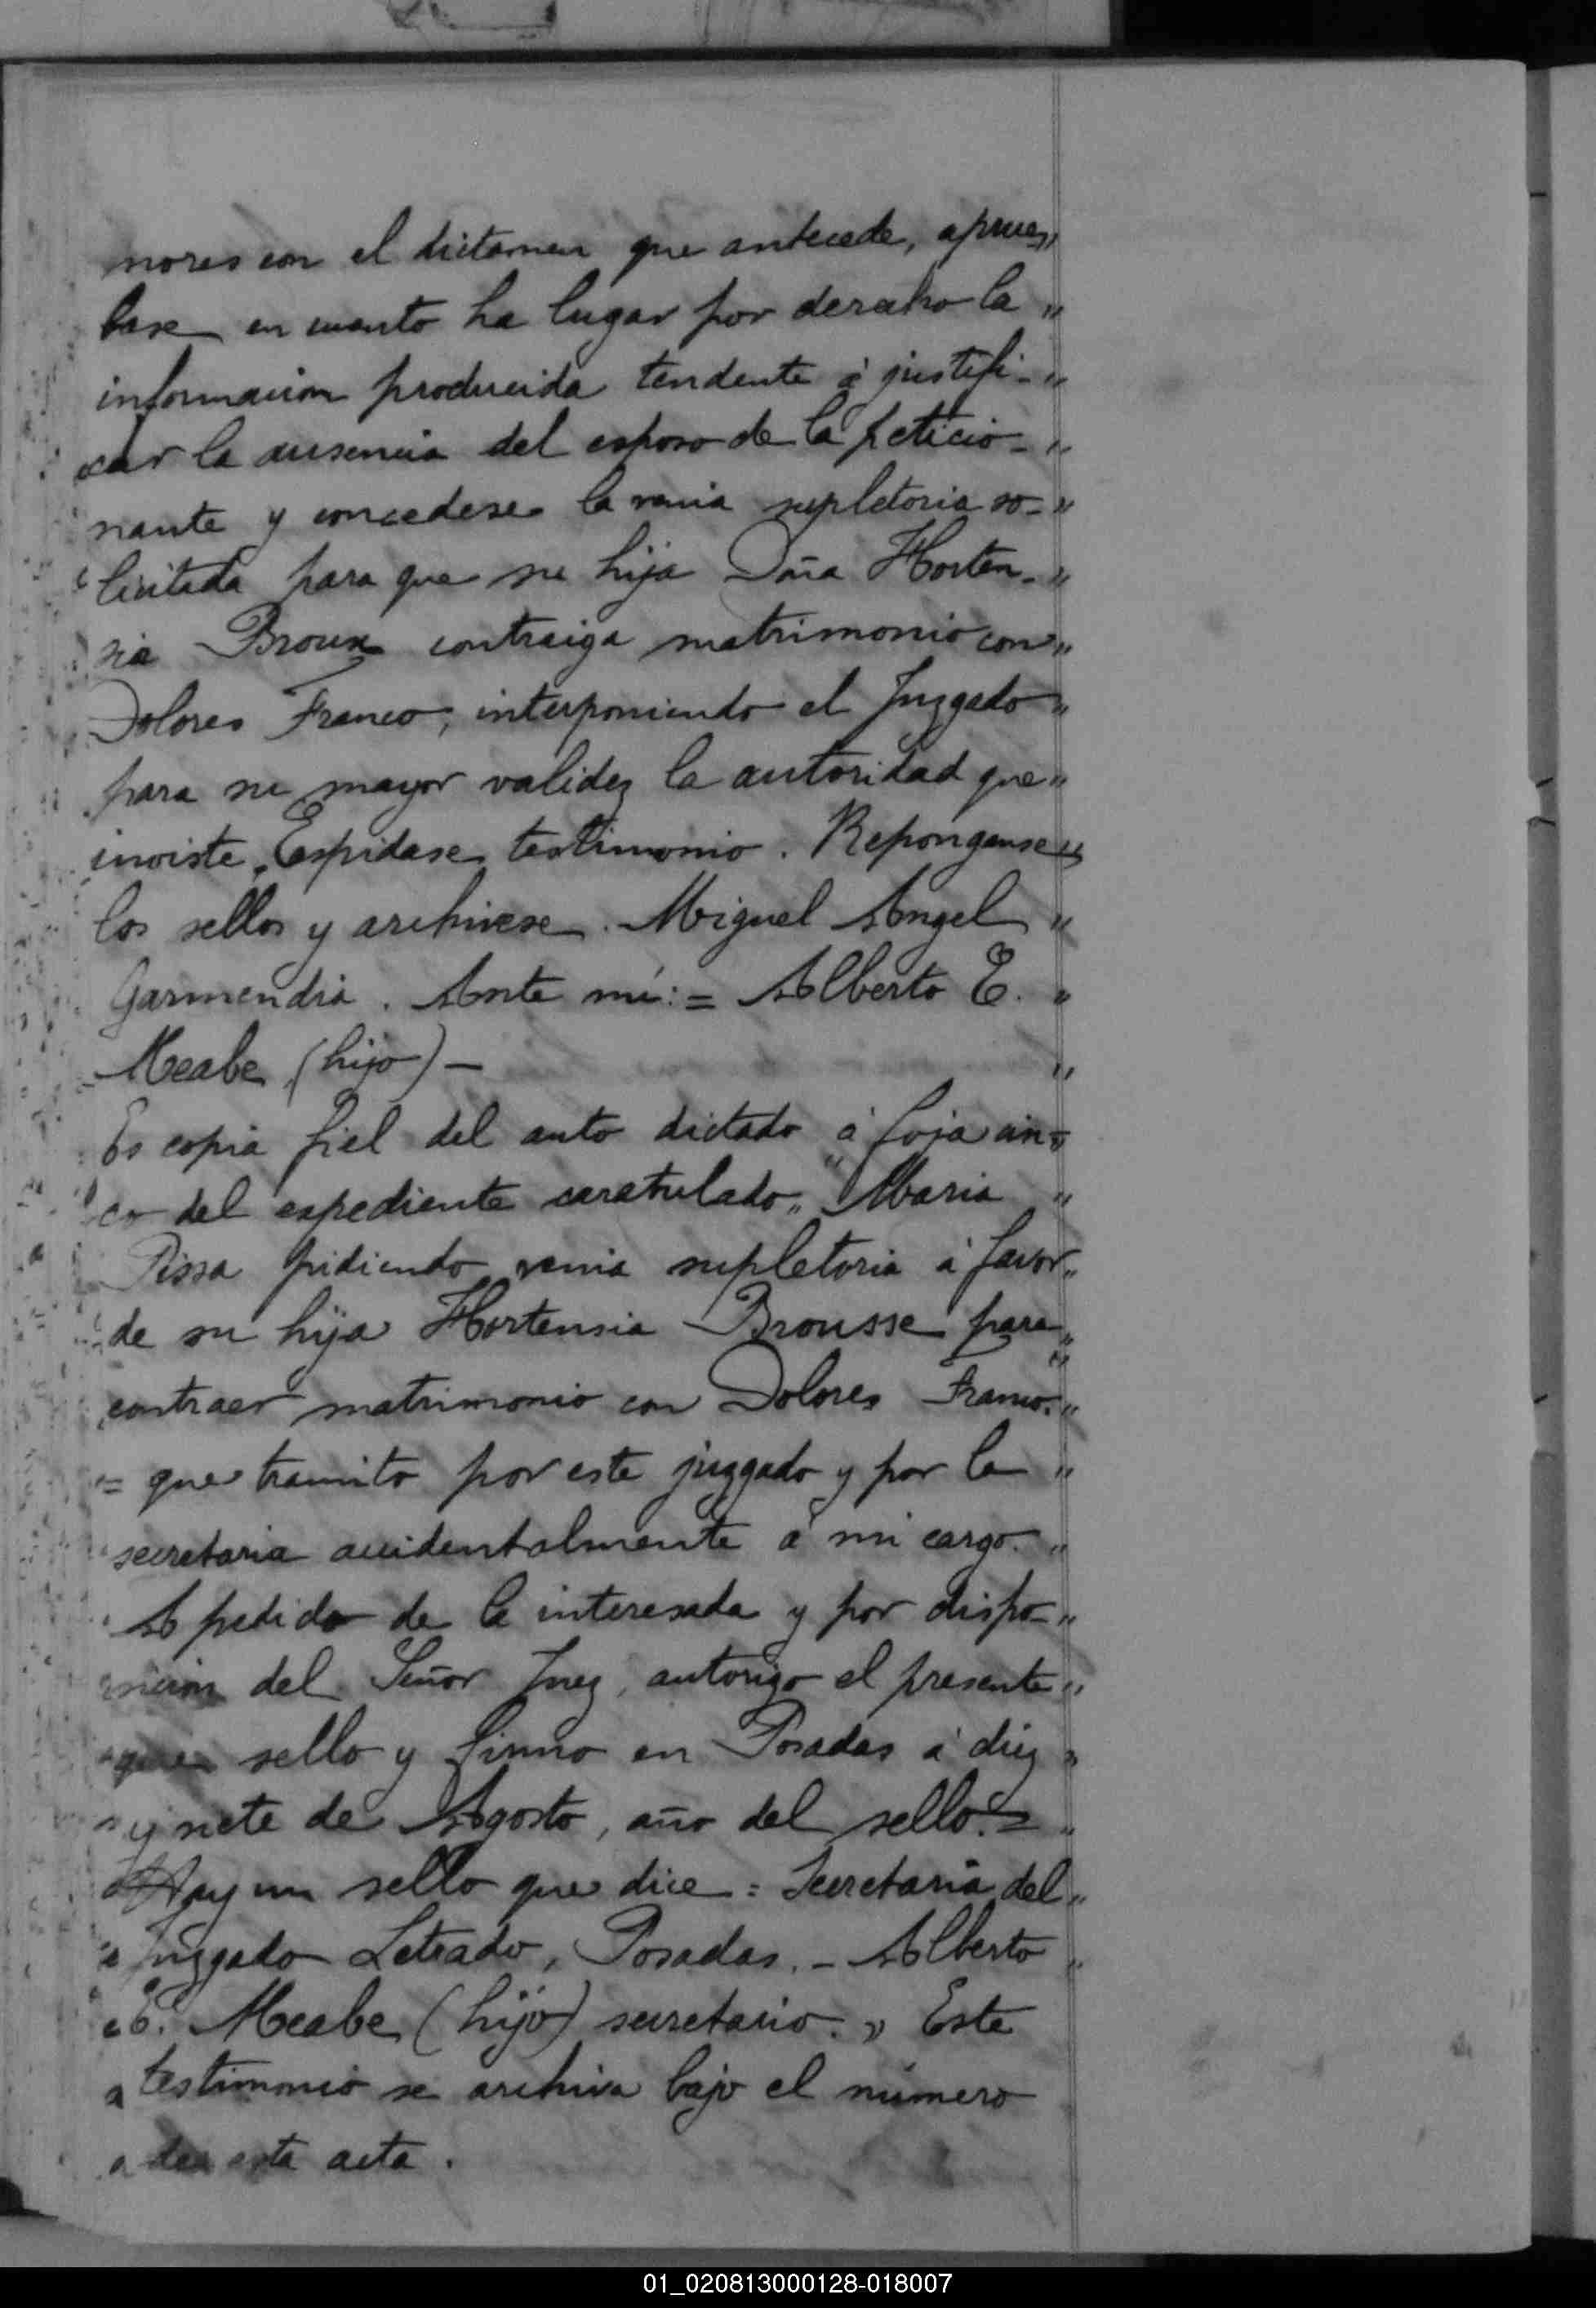 nores con el dictamen que antecede, aprue„
base en cuanto ha lugar por derecho la „
informacion producida tendente á justifi-„
car la ausencia del esposo de la peticio-„
nante y concedese la venia supletoria so-„
licitada para que su hija Doña Horten-„
sia Broux contraiga matrimonio con„
Dolores Franco, interponiendo el Juzgado„
para su mayor validez la autoridad que„
inviste. Espidase testimonio. Repongause„
los sellos y archivese. Miguel Angel „
Garmendia. Ante mí:= Alberto E. „
Meabe (hijo)- „
Es copia fiel del auto dictado á foja cin-
co del expediente caratulado „Maria „
Pissa pidiendo venia supletoria á favor„
de su hija Hortensia Brousse para„
contraer matrimonio con Dolores Franco.„
= que tramito por este juzgado y por la „
secretaria accidentalmente á mi cargo. „
A pedido de la interesada y por dispo-„
sicion del Señor Juez, autorizo el presente„
que sello y firmo en Posadas á diez „
y siete de Agosto, año del sello.= „
Hay un sello que dice: Secretaria del„
Juzgado Letrado, Posadas.- Alberto „
E. Meabe (hijo) secretario.„ Este
testimonio se archiva bajo el número
de esta acta.
01_020813000128-018007